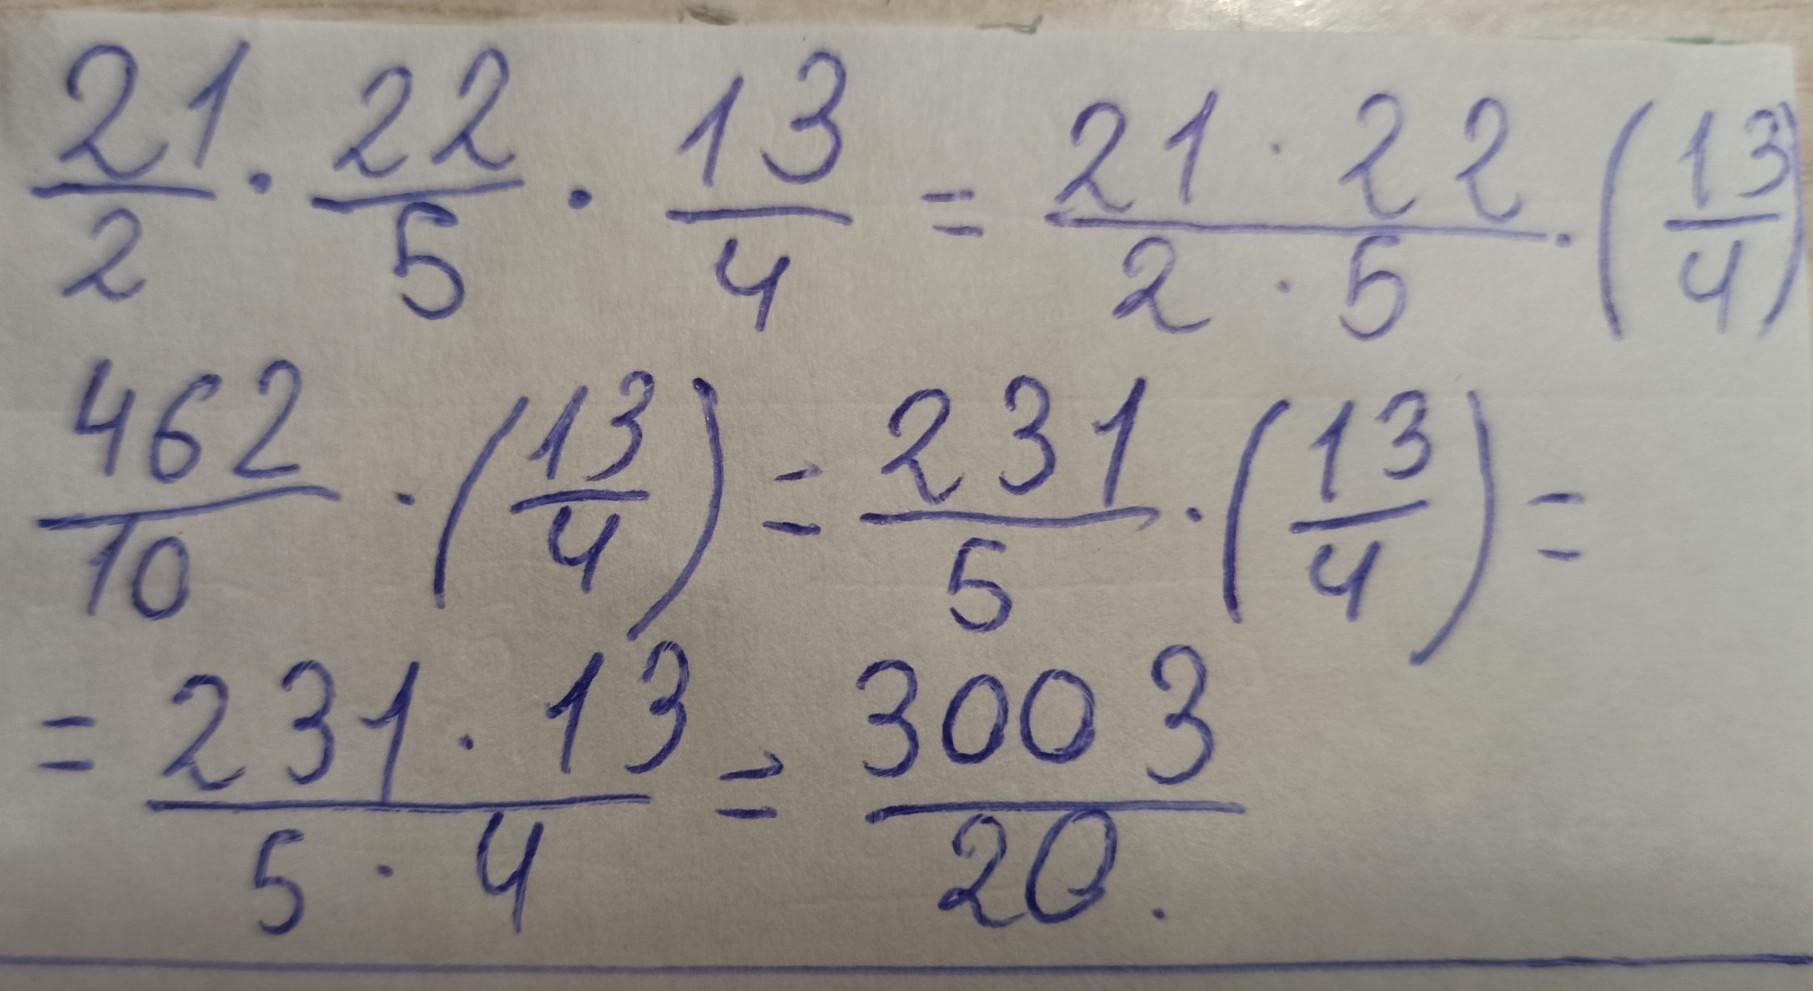 21/2 · 22/5 · 13/4 = 21 · 22/2 · 5 · (13/4)
462/10 · (13/4) = 231/5 · (13/4) =
= 231 · 13/5 · 4 = 3003/20.